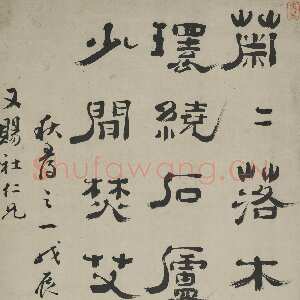 蕭二落木
環繞石廬
少間焚艾
秋之一戊辰
又賜社仁兄
Shufawang.cn